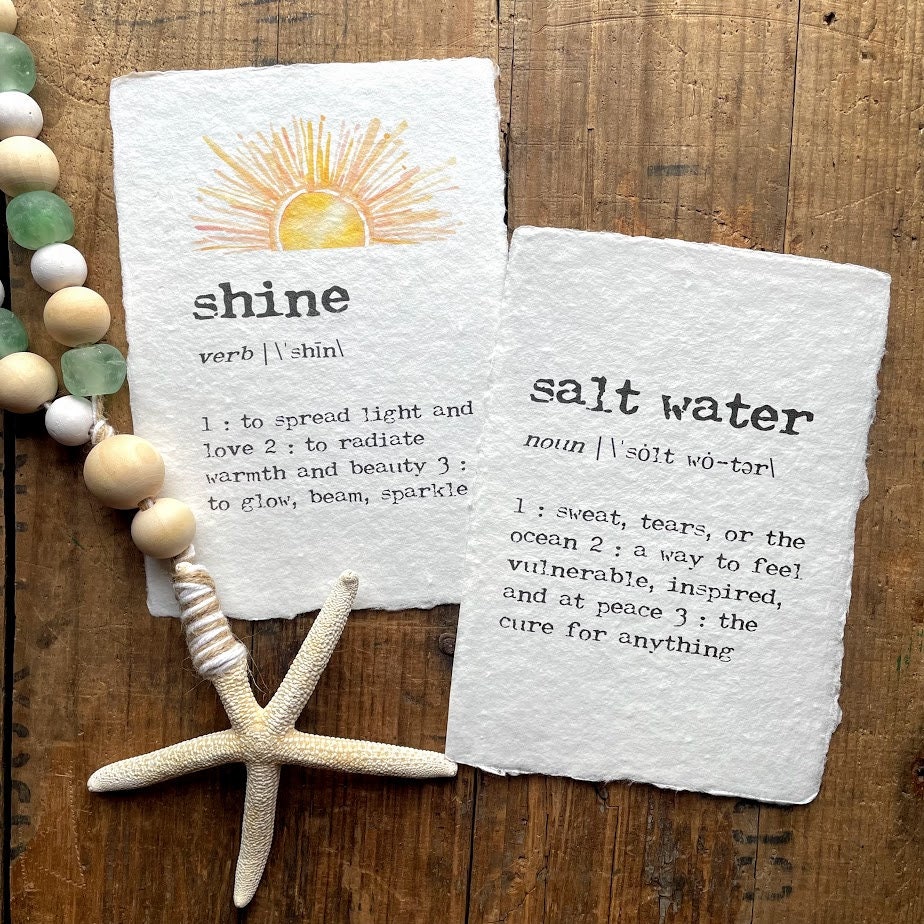 shine
verb | \ˈshīn\
1 : to spread light and
love 2 : to radiate
warmth and beauty 3 :
to glow, beam, sparkle
salt water
noun | \ˈsȯlt wȯ-tər\
1 : sweat, tears, or the
ocean 2 : a way to feel
vulnerable, inspired,
and at peace 3 : the
cure for anything